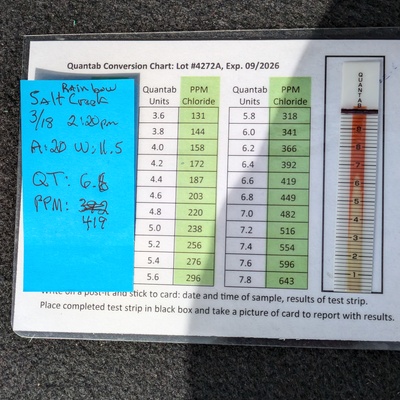 Quantab Conversion Chart: Lot #4272A, Exp. 09/2026
Rainbow
Salt Creek
3/18 2:20pm
A:20 W:11.5
QT: 6.6
PPM: 392
419
Quantab Units PPM Chloride Quantab Units PPM Chloride
3.6 131 5.8 318
3.8 144 6.0 341
4.0 158 6.2 366
4.2 172 6.4 392
4.4 187 6.6 419
4.6 203 6.8 449
4.8 220 7.0 482
5.0 238 7.2 516
5.2 256 7.4 554
5.4 276 7.6 596
5.6 296 7.8 643
QUANTAB
8
7
6
5
4
3
2
1
Write on a post-it and stick to card: date and time of sample, results of test strip.
Place completed test strip in black box and take a picture of card to report with results.